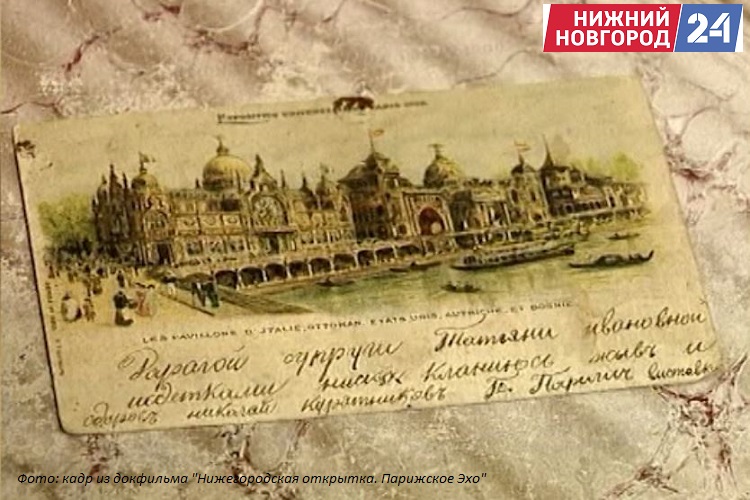 НИЖНИЙ
НОВГОРОД 24
EXPOSITION UNIVERSELLE PARIS 1900
LES PAVILLONS D'ITALIE, OTTOMAN, ETATS UNIS, AUTRICHE, ET BOSNIE
Дарагой супруги Татяни ивановной
и сдетками ниско кланиюсь жывъ и
здоровъ николай Куратниковъ П. Парижъ выставк
Фото: кадр из докфильма "Нижегородская открытка. Парижское Эхо"